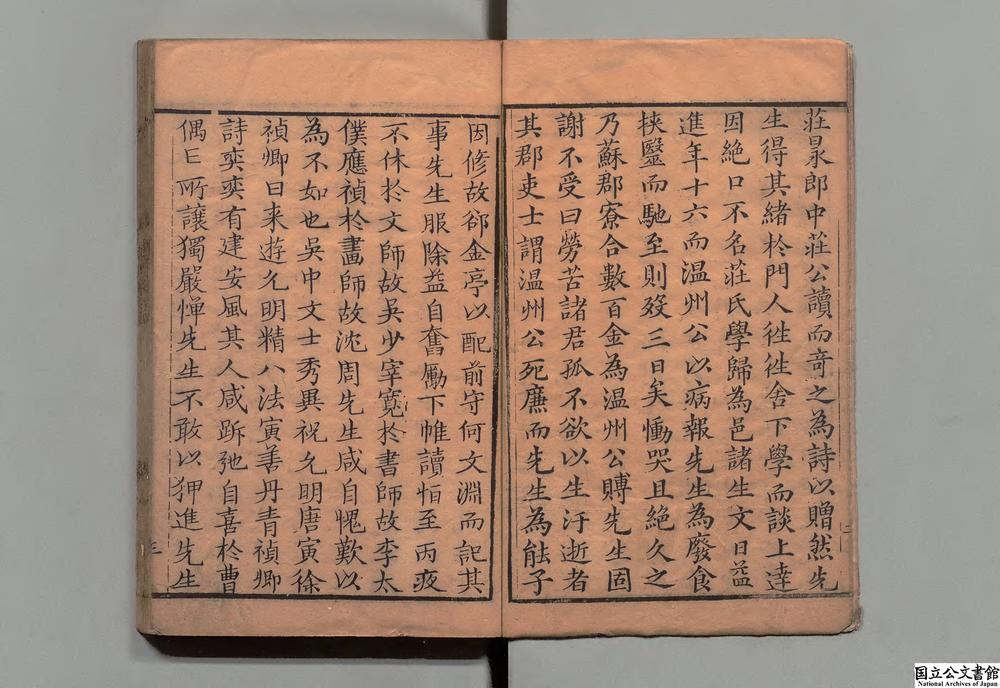 莊㫤郎中莊公讀而竒之為詩以贈然先
生得其緒於門人徃徃舍下學而談上達
因絶口不名莊氏學歸為邑諸生文日益
進年十六而温州公以病報先生為廢食
挾毉而馳至則殁三日矣慟哭且絶久之
乃蘇郡寮合數百金為温州公賻先生固
謝不受曰勞苦諸君孤不欲以生汙逝者
其郡吏士謂温州公死㢘而先生為能子
因修故郤金亭以配前守何文淵而記其
事先生服除益自奮勵下帷讀恒至丙夜
不休於文師故吳少宰寬於書師故李太
僕應禎於畫師故沈周先生咸自愧歎以
為不如也吳中文士秀異祝允明唐寅徐
禎卿日来遊允明精八法寅善丹青禎卿
詩奕奕有建安風其人咸跅弛自喜於曹
偶亡所讓獨嚴憚先生不敢以狎進先生
二
三
国立公文書館
National Archives of Japan